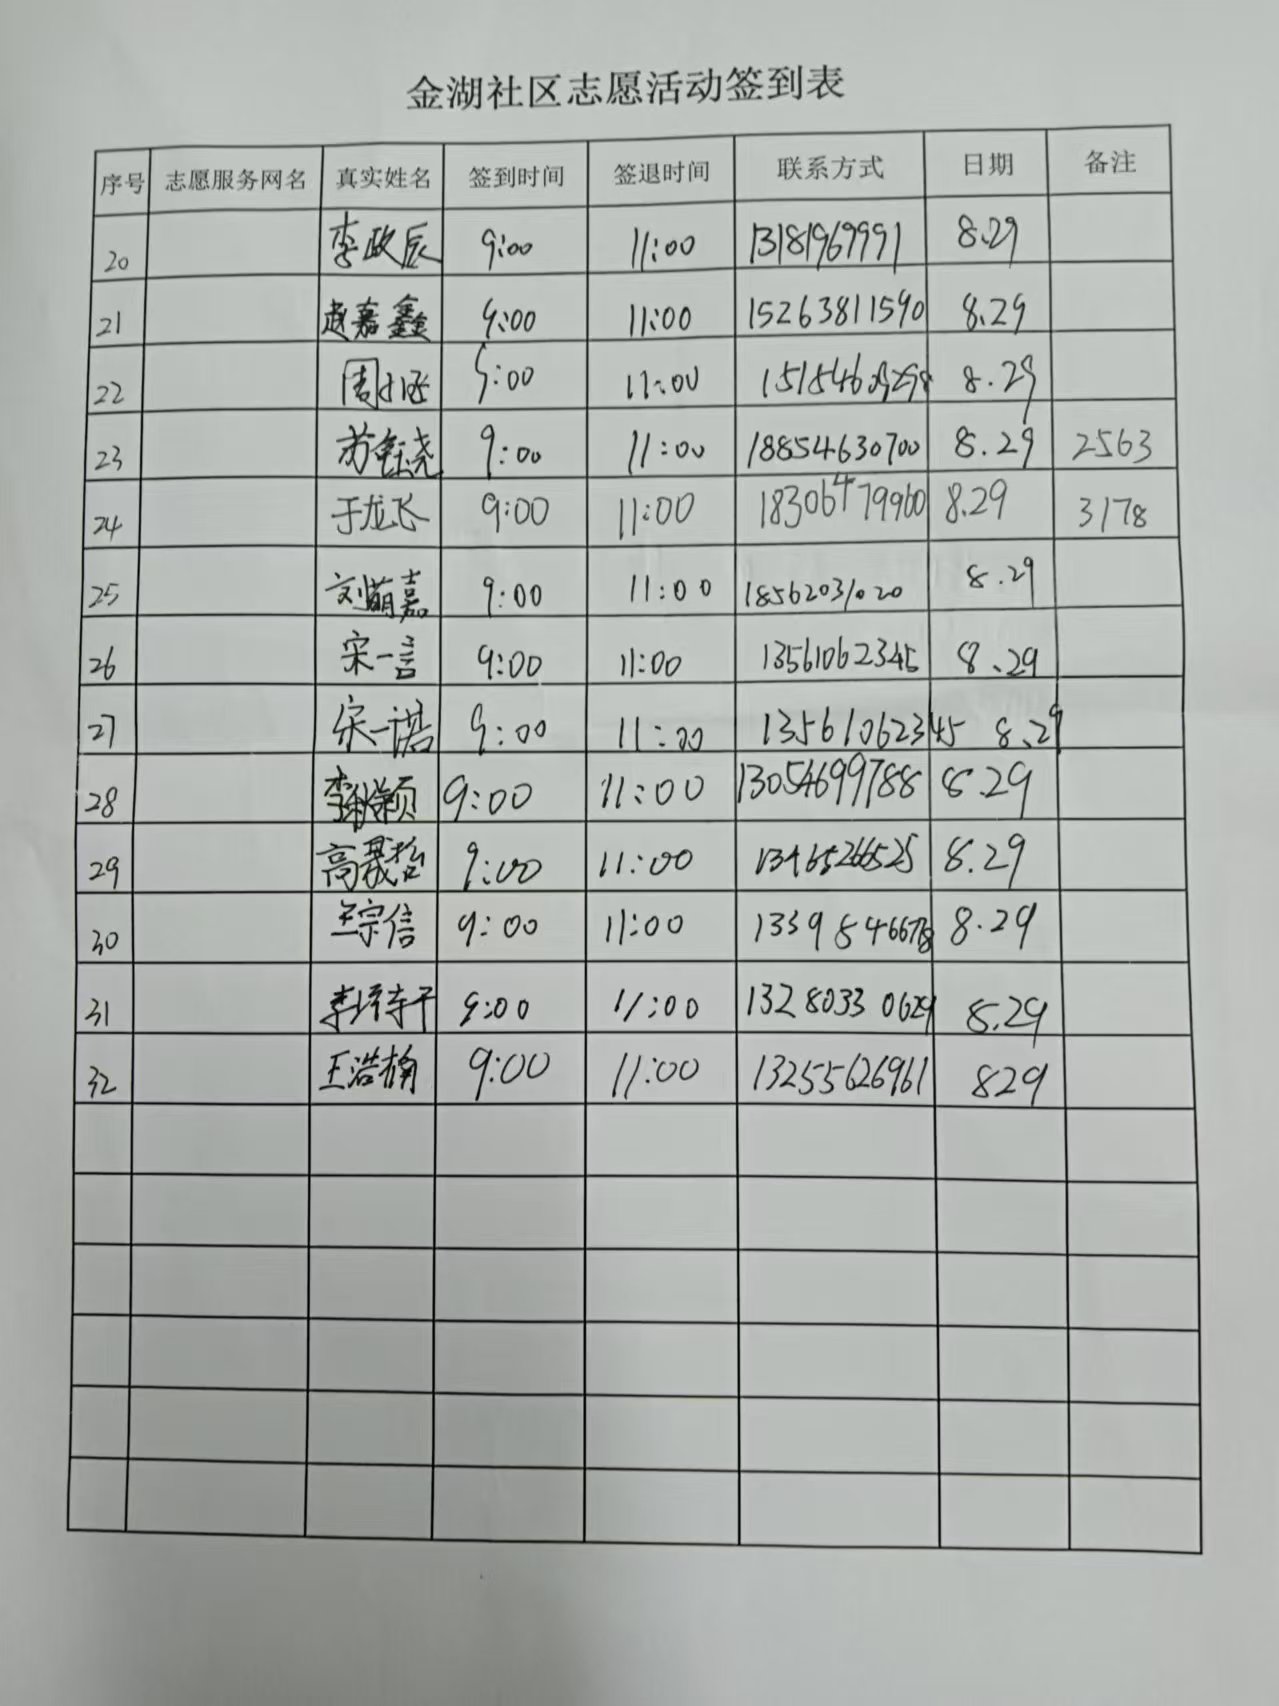 金湖社区志愿活动签到表
序号 志愿服务网名 真实姓名 签到时间 签退时间 联系方式 日期 备注
20 李政辰 9:00 11:00 13181969991 8.29
21 赵嘉鑫 9:00 11:00 15263811590 8.29
22 9:00 11:00 8.29
23 9:00 11:00 18854630700 8.29 2563
24 于龙飞 9:00 11:00 18306479960 8.29 3178
25 刘萌嘉 9:00 11:00 18562031020 8.29
26 宋一言 9:00 11:00 13561062345 8.29
27 宋一诺 9:00 11:00 13561062345 8.29
28 9:00 11:00 13054699788 8.29
29 高晟哲 9:00 11:00 13465266525 8.29
30 王宗信 9:00 11:00 8.29
31 9:00 11:00 13280330629 8.29
32 王浩楠 9:00 11:00 13255626961 829